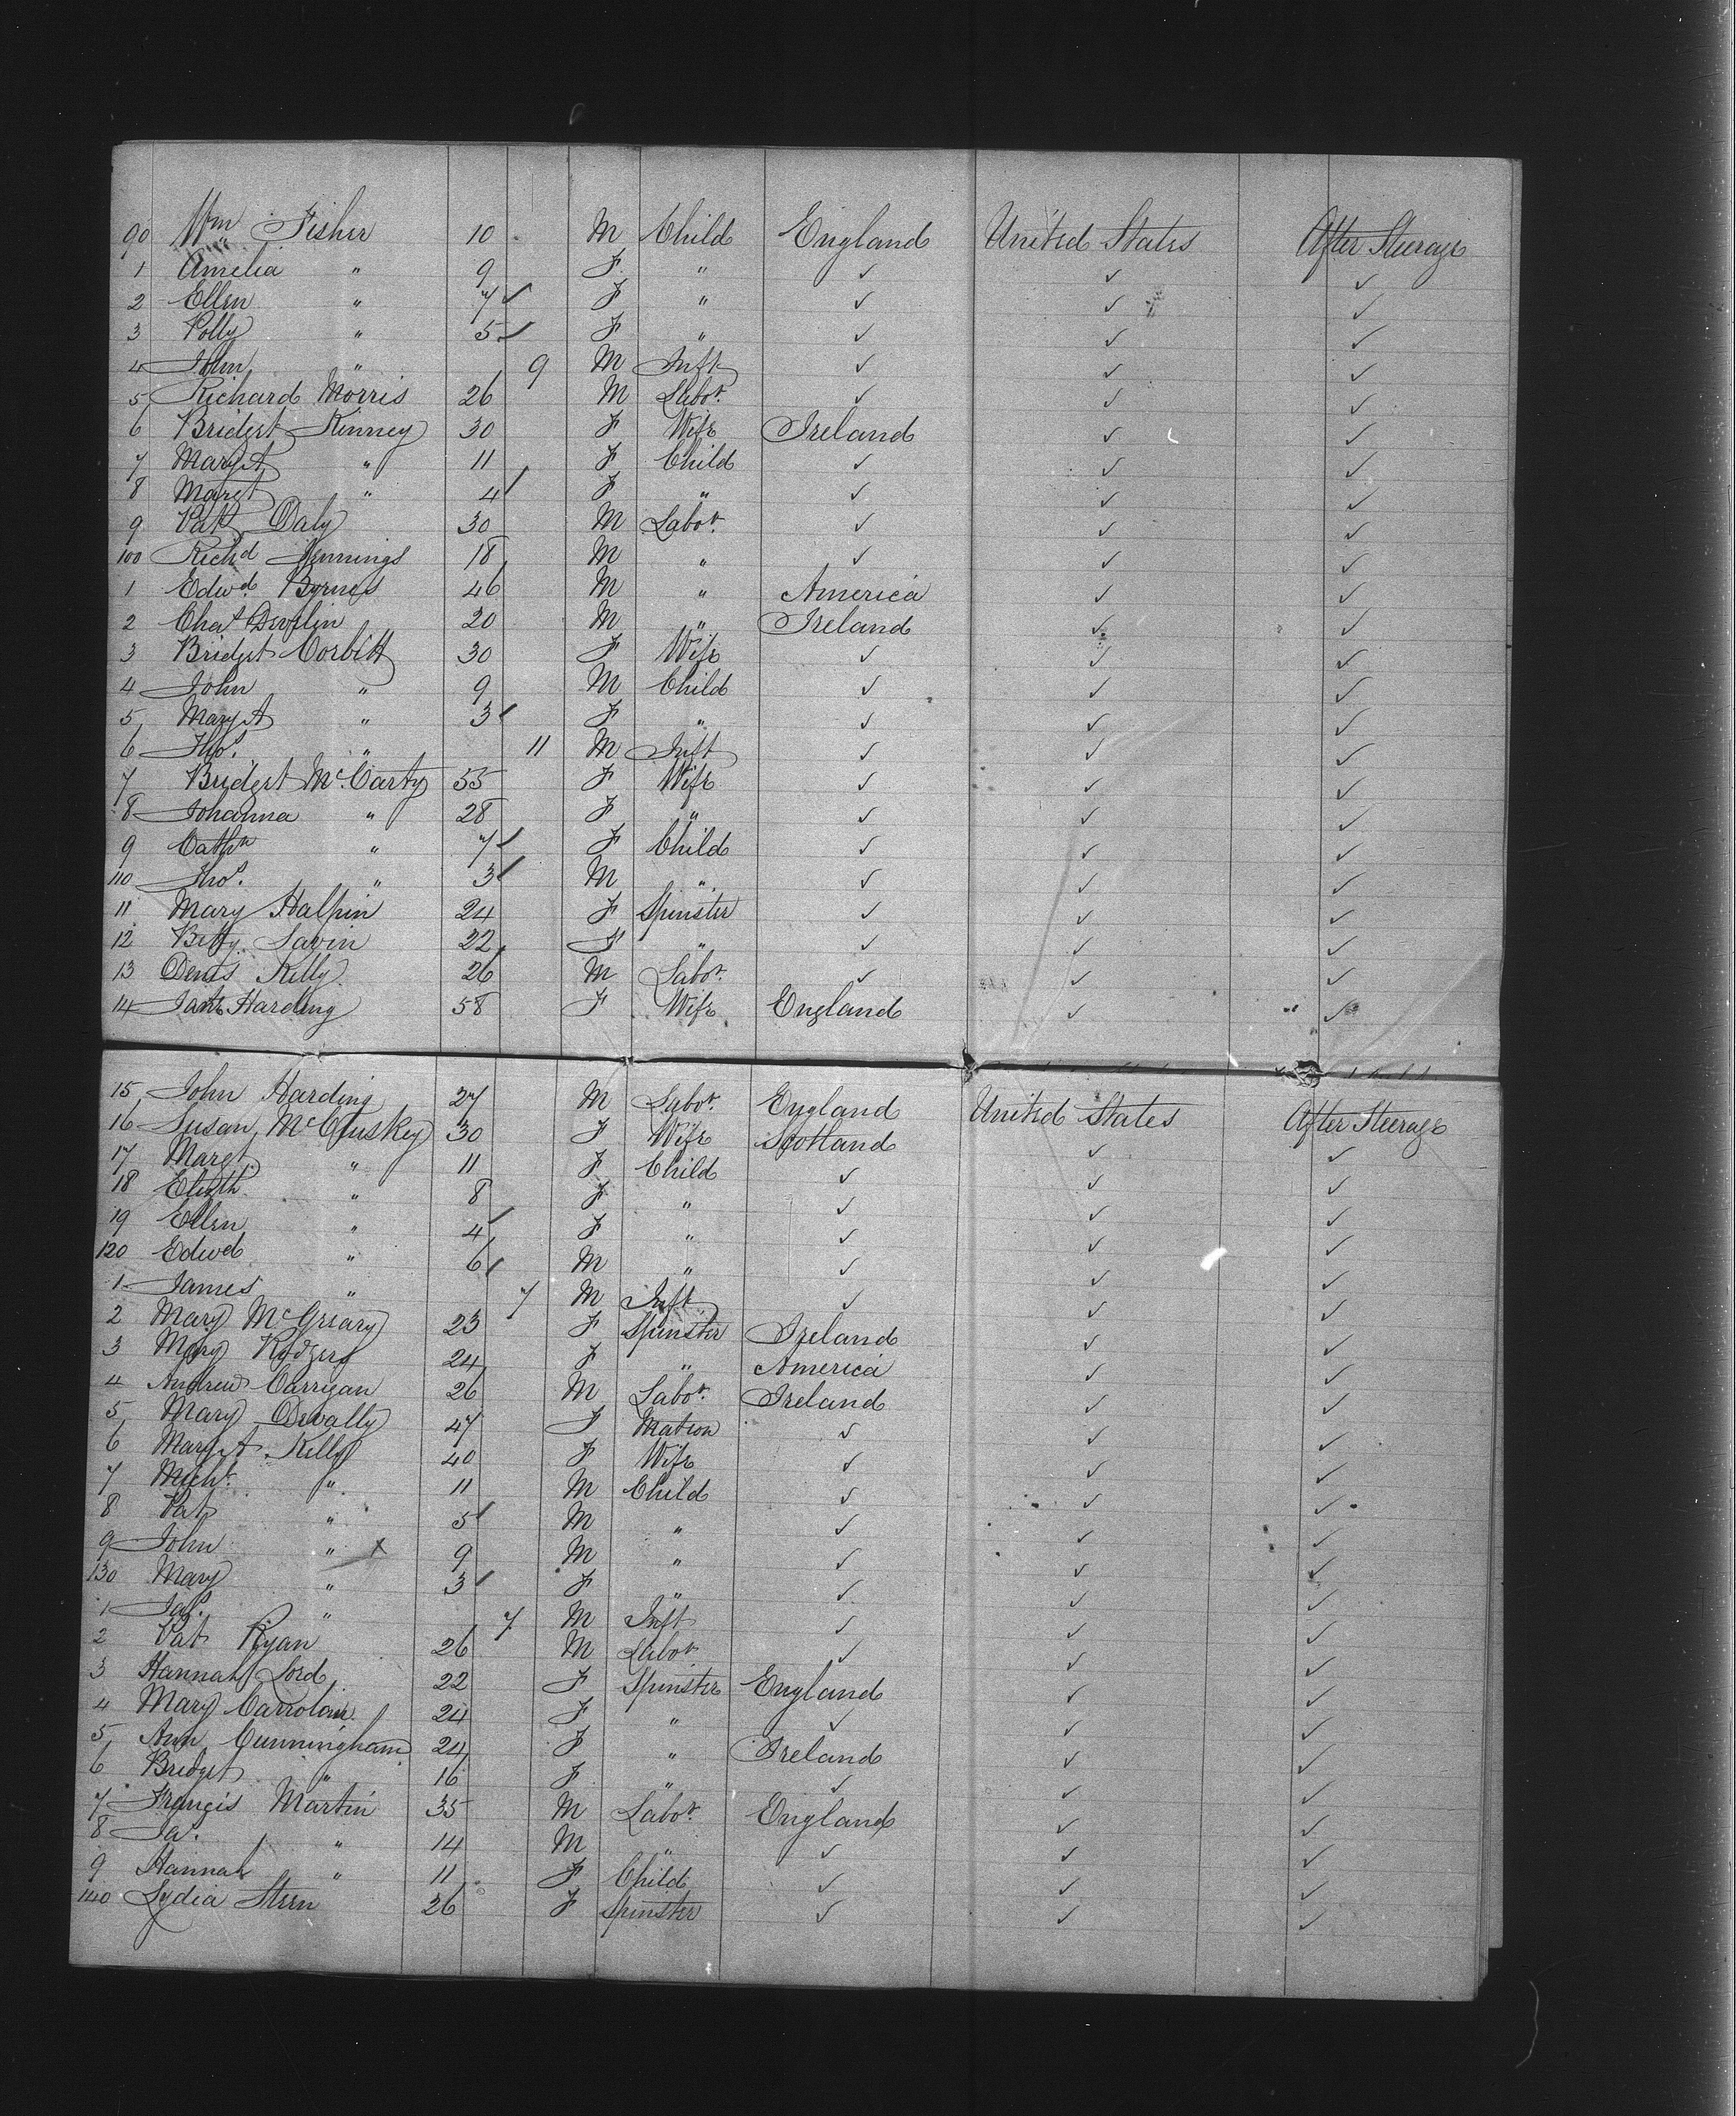 90 Wm Fisher 10 M Child England United States After Steerage
1 Amelia " 9 F " ✓ ✓ ✓
2 Ellen " 7 ✓ F " ✓ ✓ ✓
3 Polly " 5 ✓ F " ✓ ✓ ✓
4 John " 9 M Inft ✓ ✓ ✓
5 Richard Morris 26 M Labor. ✓ ✓ ✓
6 Bridget Kinney 30 F Wife Ireland ✓ ✓
7 Mary A " 11 F Child ✓ ✓ ✓
8 Margt " 4 ✓ F " ✓ ✓ ✓
9 Patk Daly 30 M Labor. ✓ ✓ ✓
100 Richd Jennings 18 M " ✓ ✓ ✓
1 Edwd. Byrnes 46 M " America ✓ ✓
2 Chas Devlin 20 M " Ireland ✓ ✓
3 Bridget Corbitt 30 F Wife ✓ ✓ ✓
4 John " 9 M Child ✓ ✓ ✓
5 Mary A " 3 ✓ F " ✓ ✓ ✓
6 Thos. " 11 M Inft ✓ ✓ ✓
7 Bridget McCarty 55 F Wife ✓ ✓ ✓
8 Johanna " 28 F " ✓ ✓ ✓
9 Cathn " 7 ✓ F Child ✓ ✓ ✓
110 Thos. " 3 ✓ M " ✓ ✓ ✓
11 Mary Halpin 24 F Spinster ✓ ✓ ✓
12 Betty Lavin 22 F " ✓ ✓ ✓
13 Denis Kelly 26 M Labor. ✓ ✓ ✓
14 Jane Harding 58 F Wife England ✓ ✓
15 John Harding 27 M Labor. England United States After Steerage
16 Susan McCluskey 30 F Wife Scotland ✓ ✓
17 Margt " 11 F Child ✓ ✓ ✓
18 Elizth " 8 F " ✓ ✓ ✓
19 Ellen " 4 ✓ F " ✓ ✓ ✓
120 Edwd " 6 ✓ M " ✓ ✓ ✓
1 James " 7 M Inft ✓ ✓ ✓
2 Mary McGreary 23 F Spinster Ireland ✓ ✓
3 Mary Rodgers 24 F " America ✓ ✓
4 Andrew Carrigan 26 M Labor. Ireland ✓ ✓
5 Mary Devally 47 F Matron ✓ ✓ ✓
6 Margt Kelly 40 F Wife ✓ ✓ ✓
7 Michl. " 11 M Child ✓ ✓ ✓
8 Pat " 5 ✓ M " ✓ ✓ ✓
9 John " x 9 M " ✓ ✓ ✓
130 Mary " 3 ✓ F " ✓ ✓ ✓
1 Jas. " 7 M Inft ✓ ✓ ✓
2 Pat Ryan 26 M Labor. ✓ ✓ ✓
3 Hannah Lord 22 F Spinster England ✓ ✓
4 Mary 24 F " ✓ ✓ ✓
5 Ann Cunningham 24 F " Ireland ✓ ✓
6 Bridget " 16 F " ✓ ✓ ✓
7 Francis Martin 35 M Labor. England ✓ ✓
8 Jas. " 14 M " ✓ ✓ ✓
9 Hannah " 11 F Child ✓ ✓ ✓
140 Lydia 26 F Spinster ✓ ✓ ✓